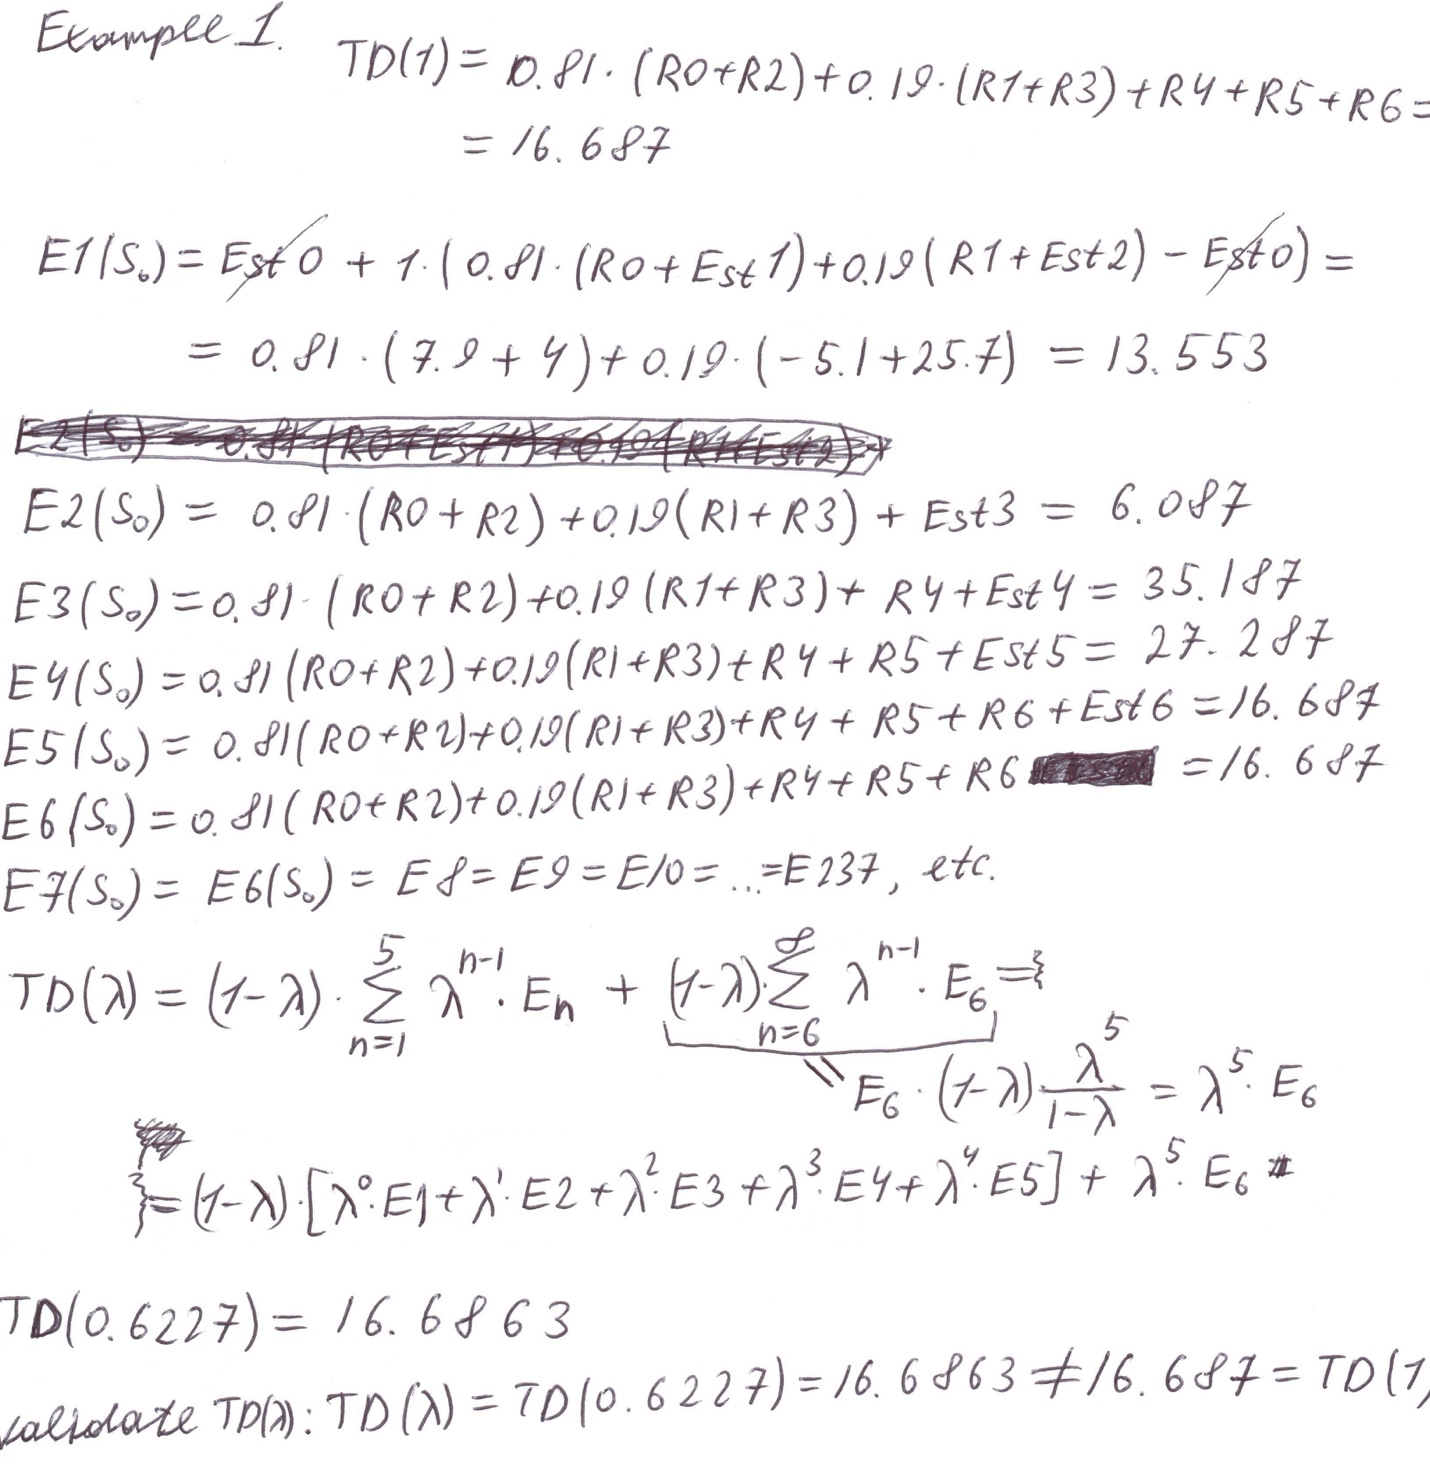 Example 1.
TD(1) = 0.81·(R0+R2)+0.19·(R1+R3)+R4+R5+R6=
= 16.687
E1(S₀) = Est0 + 1·(0.81·(R0+Est1)+0.19(R1+Est2) - Est0) =
= 0.81·(7.9+4)+0.19·(-5.1+25.7) = 13.553
E2(S₀) = 0.81 (R0+Est1)+0.19(R1+Est2)+
E2(S₀) = 0.81·(R0+R2)+0.19(R1+R3)+Est3 = 6.087
E3(S₀) = 0.81·(R0+R2)+0.19(R1+R3)+R4+Est4 = 35.187
E4(S₀) = 0.81(R0+R2)+0.19(R1+R3)+R4+R5+Est5 = 27.287
E5(S₀) = 0.81(R0+R2)+0.19(R1+R3)+R4+R5+R6+Est6 = 16.687
E6(S₀) = 0.81(R0+R2)+0.19(R1+R3)+R4+R5+R6 = 16.687
E7(S₀) = E6(S₀) = E8 = E9 = E10 = ... = E237, etc.
TD(λ) = (1-λ)·∑_{n=1}^{5} λ^{n-1}·Eₙ + (1-λ)·∑_{n=6}^{∞} λ^{n-1}·E₆ =
= E₆·(1-λ) λ⁵/(1-λ) = λ⁵·E₆
= (1-λ)·[λ⁰·E1+λ¹·E2+λ²·E3+λ³·E4+λ⁴·E5] + λ⁵·E₆
TD(0.6227) = 16.6863
validate TD(λ): TD(λ) = TD(0.6227) = 16.6863 ≠ 16.687 = TD(1)